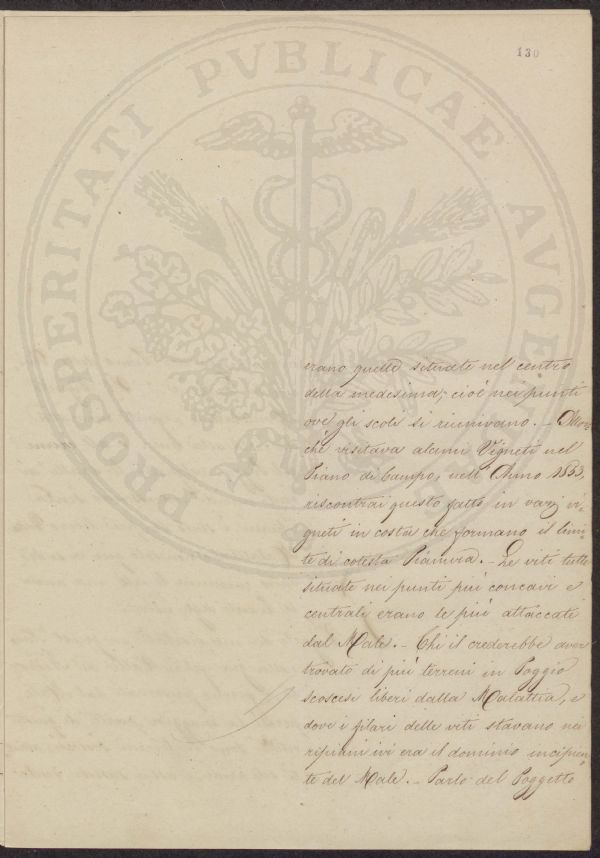 130
PROSPERITATI PVBLICAE AVGENDAE
erano quelle situate nel centro
della medesima; cioè nei punti
ove gli scoli si riunivano. _ Allor
chè visitava alcuni Vigneti nel
Piano di Campo, nell'Anno 1853,
riscontrai questo fatto in varj vi-
gneti in costa che formano il limi-
te di cotesta Pianura. _ Le viti tutte
situate nei punti più concavi e
centrali erano le più attaccate
dal Male. _ Chi il crederebbe aver
trovato di più terreni in Poggio
scoscesi liberi dalla Malattia, e
dove i filari delle viti stavano nei
ripiani ivi era il dominio incipien-
te del Male. _ Parlo del Poggetto